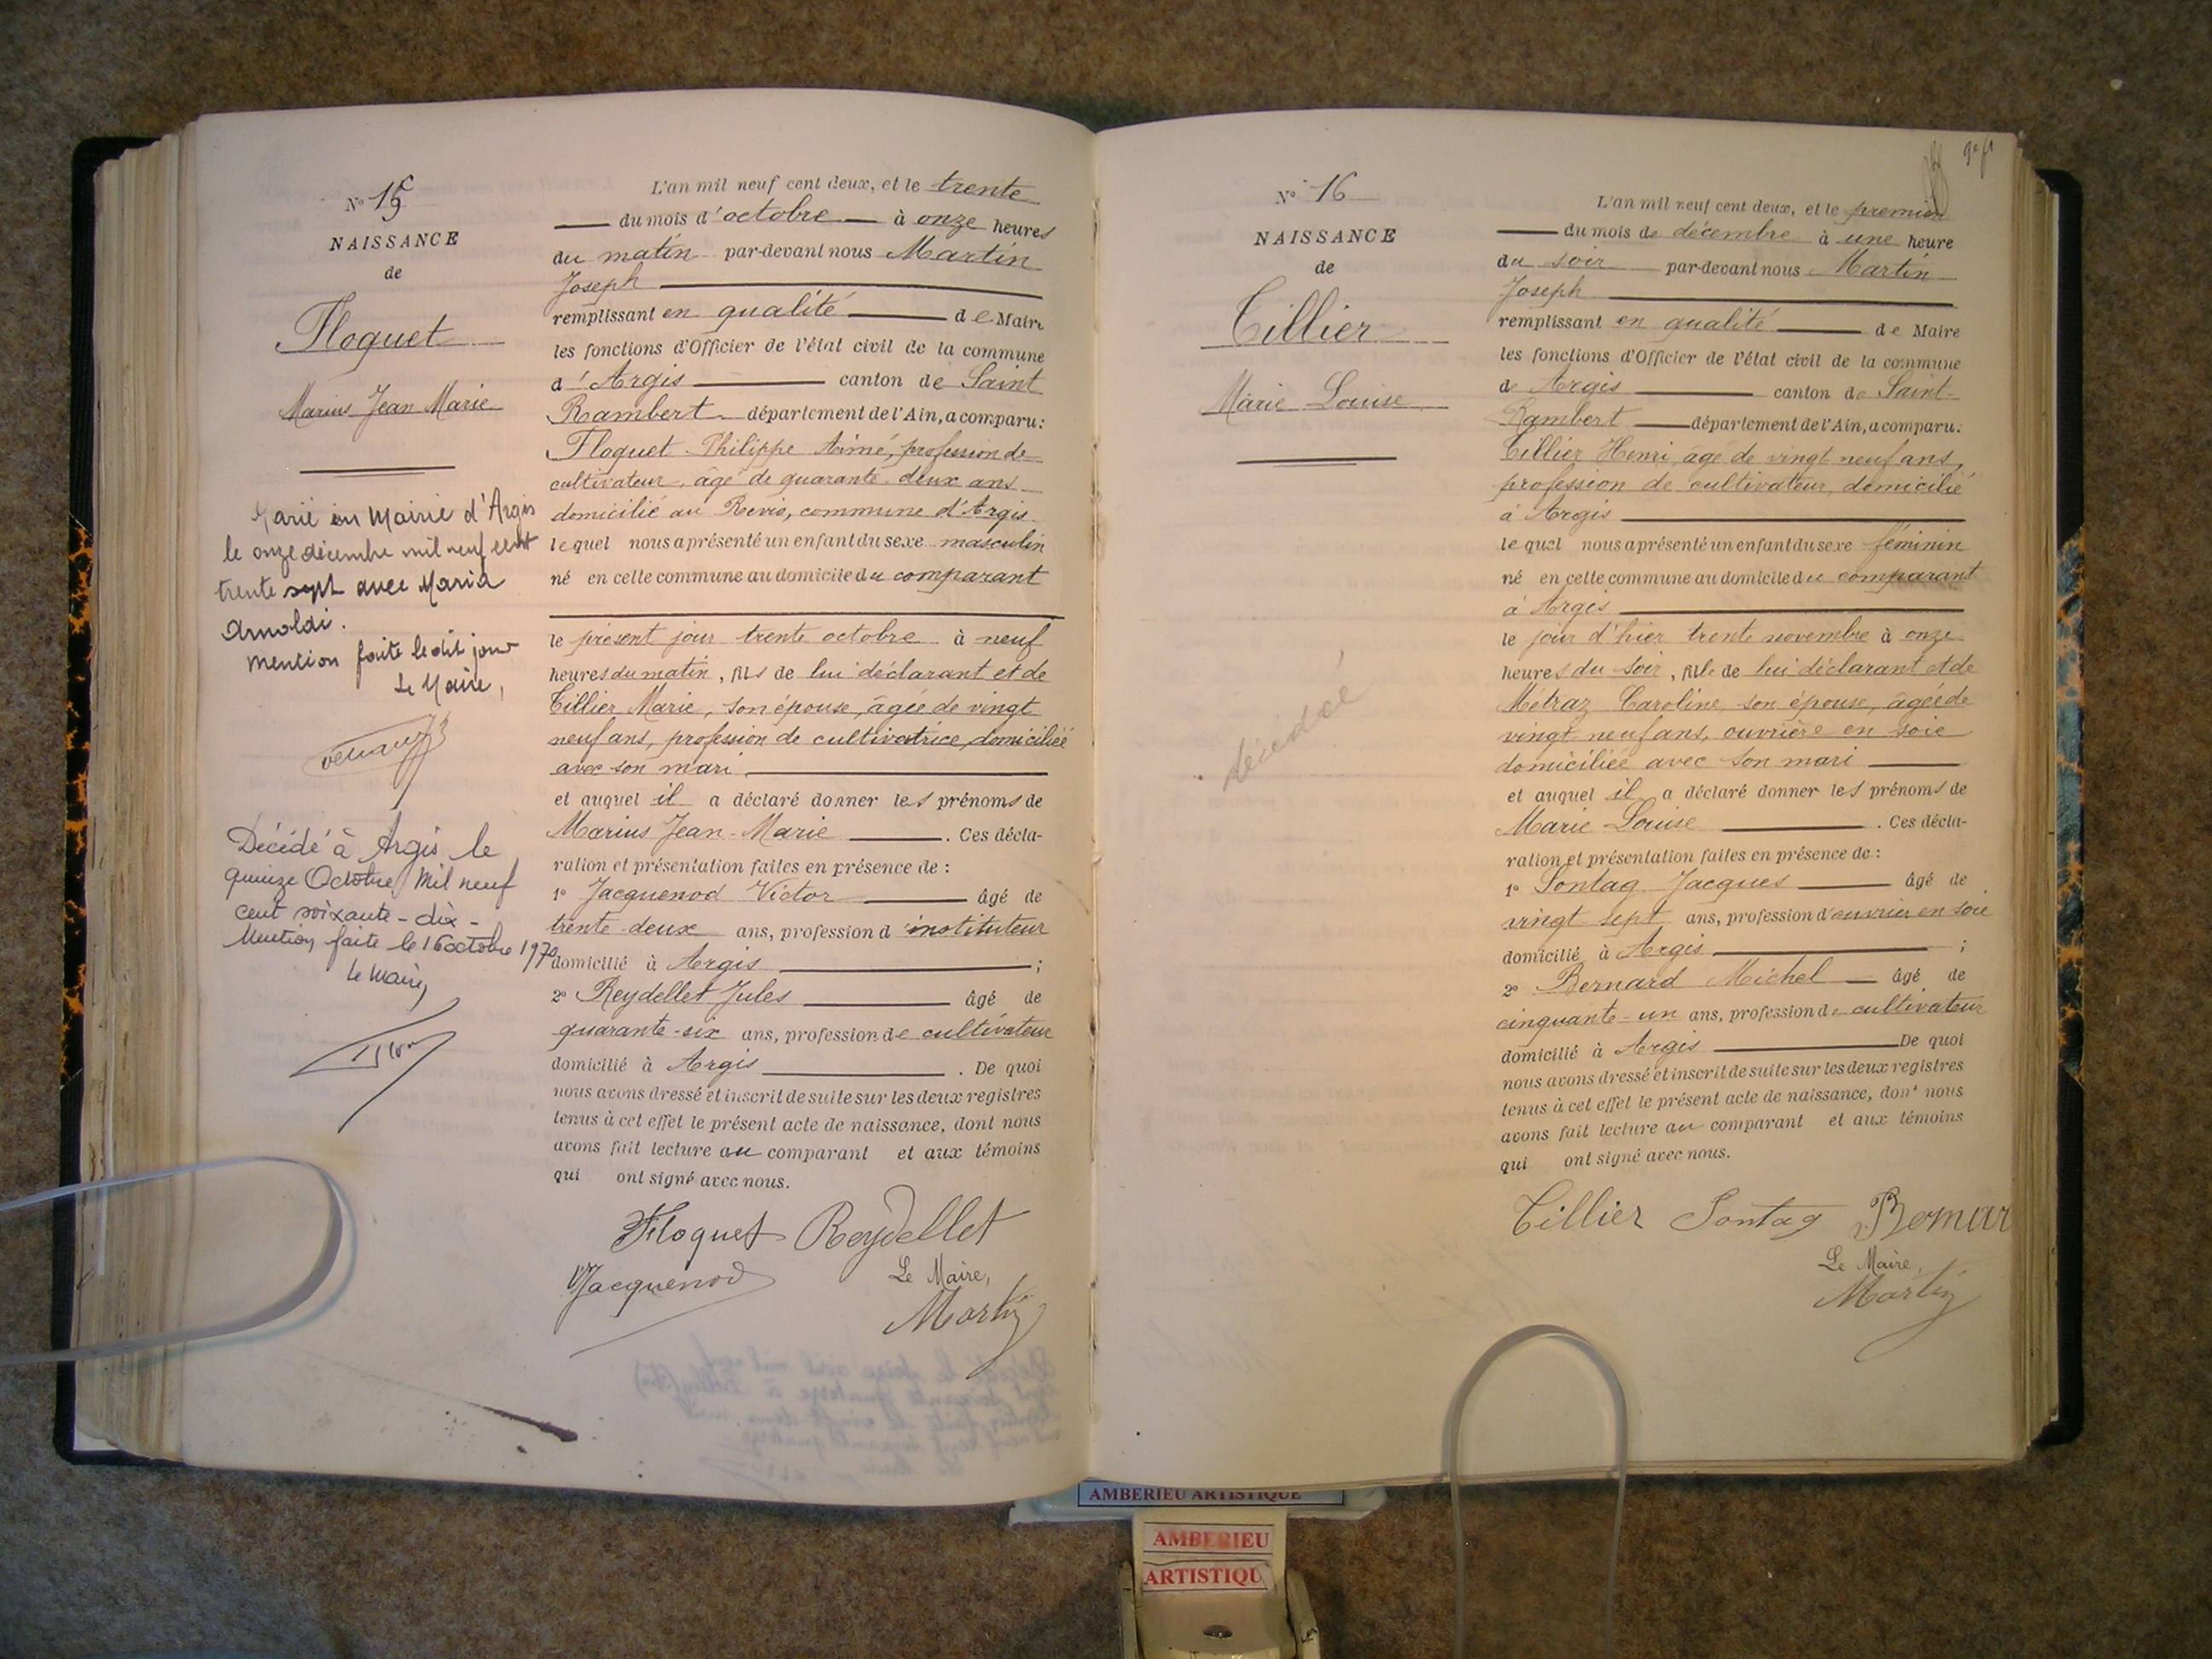 N° 15
NAISSANCE
de
Floquet
Marius Jean Marie
Marié en Mairie d'Argis
le onze décembre mil neuf cent
trente sept avec Maria
Arnoldi.
Mention faite le dit jour
Le Maire,
Décédé à Argis le
quinze Octobre Mil neuf
cent soixante-dix-
Mention faite le 16 octobre 1970
Le Maire
L'an mil neuf cent deux, et le trente
du mois d'octobre à onze heures
du matin par-devant nous Martin
Joseph
remplissant en qualité de Maire
les fonctions d'Officier de l'état civil de la commune
d'Argis canton de Saint
Rambert département de l'Ain, a comparu:
Floquet Philippe Aimé, profession de
cultivateur, âgé de quarante deux ans
domicilié au Revio, commune d'Argis
lequel nous a présenté un enfant du sexe masculin
né en cette commune au domicile du comparant
le présent jour trente octobre à neuf
heures du matin, fils de lui déclarant et de
Tillier Marie, son épouse, âgée de vingt
neuf ans, profession de cultivatrice, domiciliée
avec son mari
et auquel il a déclaré donner les prénoms de
Marius Jean-Marie. Ces décla-
ration et présentation faites en présence de :
1° Jacquenod Victor âgé de
trente-deux ans, profession d'instituteur
domicilié à Argis ;
2° Reydellet Jules âgé de
quarante-six ans, profession de cultivateur
domicilié à Argis. De quoi
nous avons dressé et inscrit de suite sur les deux registres
tenus à cet effet le présent acte de naissance, dont nous
avons fait lecture au comparant et aux témoins
qui ont signé avec nous.
Floquet Reydellet
VJacquenod Le Maire,
Martin
N° 16
NAISSANCE
de
Tillier
Marie Louise
décédée
L'an mil neuf cent deux, et le premier
du mois de décembre à une heure
du soir par-devant nous Martin
Joseph
remplissant en qualité de Maire
les fonctions d'Officier de l'état civil de la commune
de Argis canton de Saint-
Rambert département de l'Ain, a comparu:
Tillier Henri, âgé de vingt neuf ans,
profession de cultivateur, domicilié
à Argis
lequel nous a présenté un enfant du sexe féminin
né en cette commune au domicile du comparant
à Argis
le jour d'hier trente novembre à onze
heures du soir, fille de lui déclarant et de
Métraz Caroline, son épouse, âgée de
vingt neuf ans, ouvrière en soie
domiciliée avec son mari
et auquel il a déclaré donner les prénoms de
Marie-Louise. Ces décla-
ration et présentation faites en présence de :
1° Sontag Jacques âgé de
vingt sept ans, profession d'ouvrier en soie
domicilié à Argis ;
2° Bernard Michel âgé de
cinquante-un ans, profession de cultivateur
domicilié à Argis De quoi
nous avons dressé et inscrit de suite sur les deux registres
tenus à cet effet le présent acte de naissance, dont nous
avons fait lecture au comparant et aux témoins
qui ont signé avec nous.
Tillier Sontag
Le Maire,
Martin
AMBERIEU ARTISTIQUE
AMBERIEU
ARTISTIQU